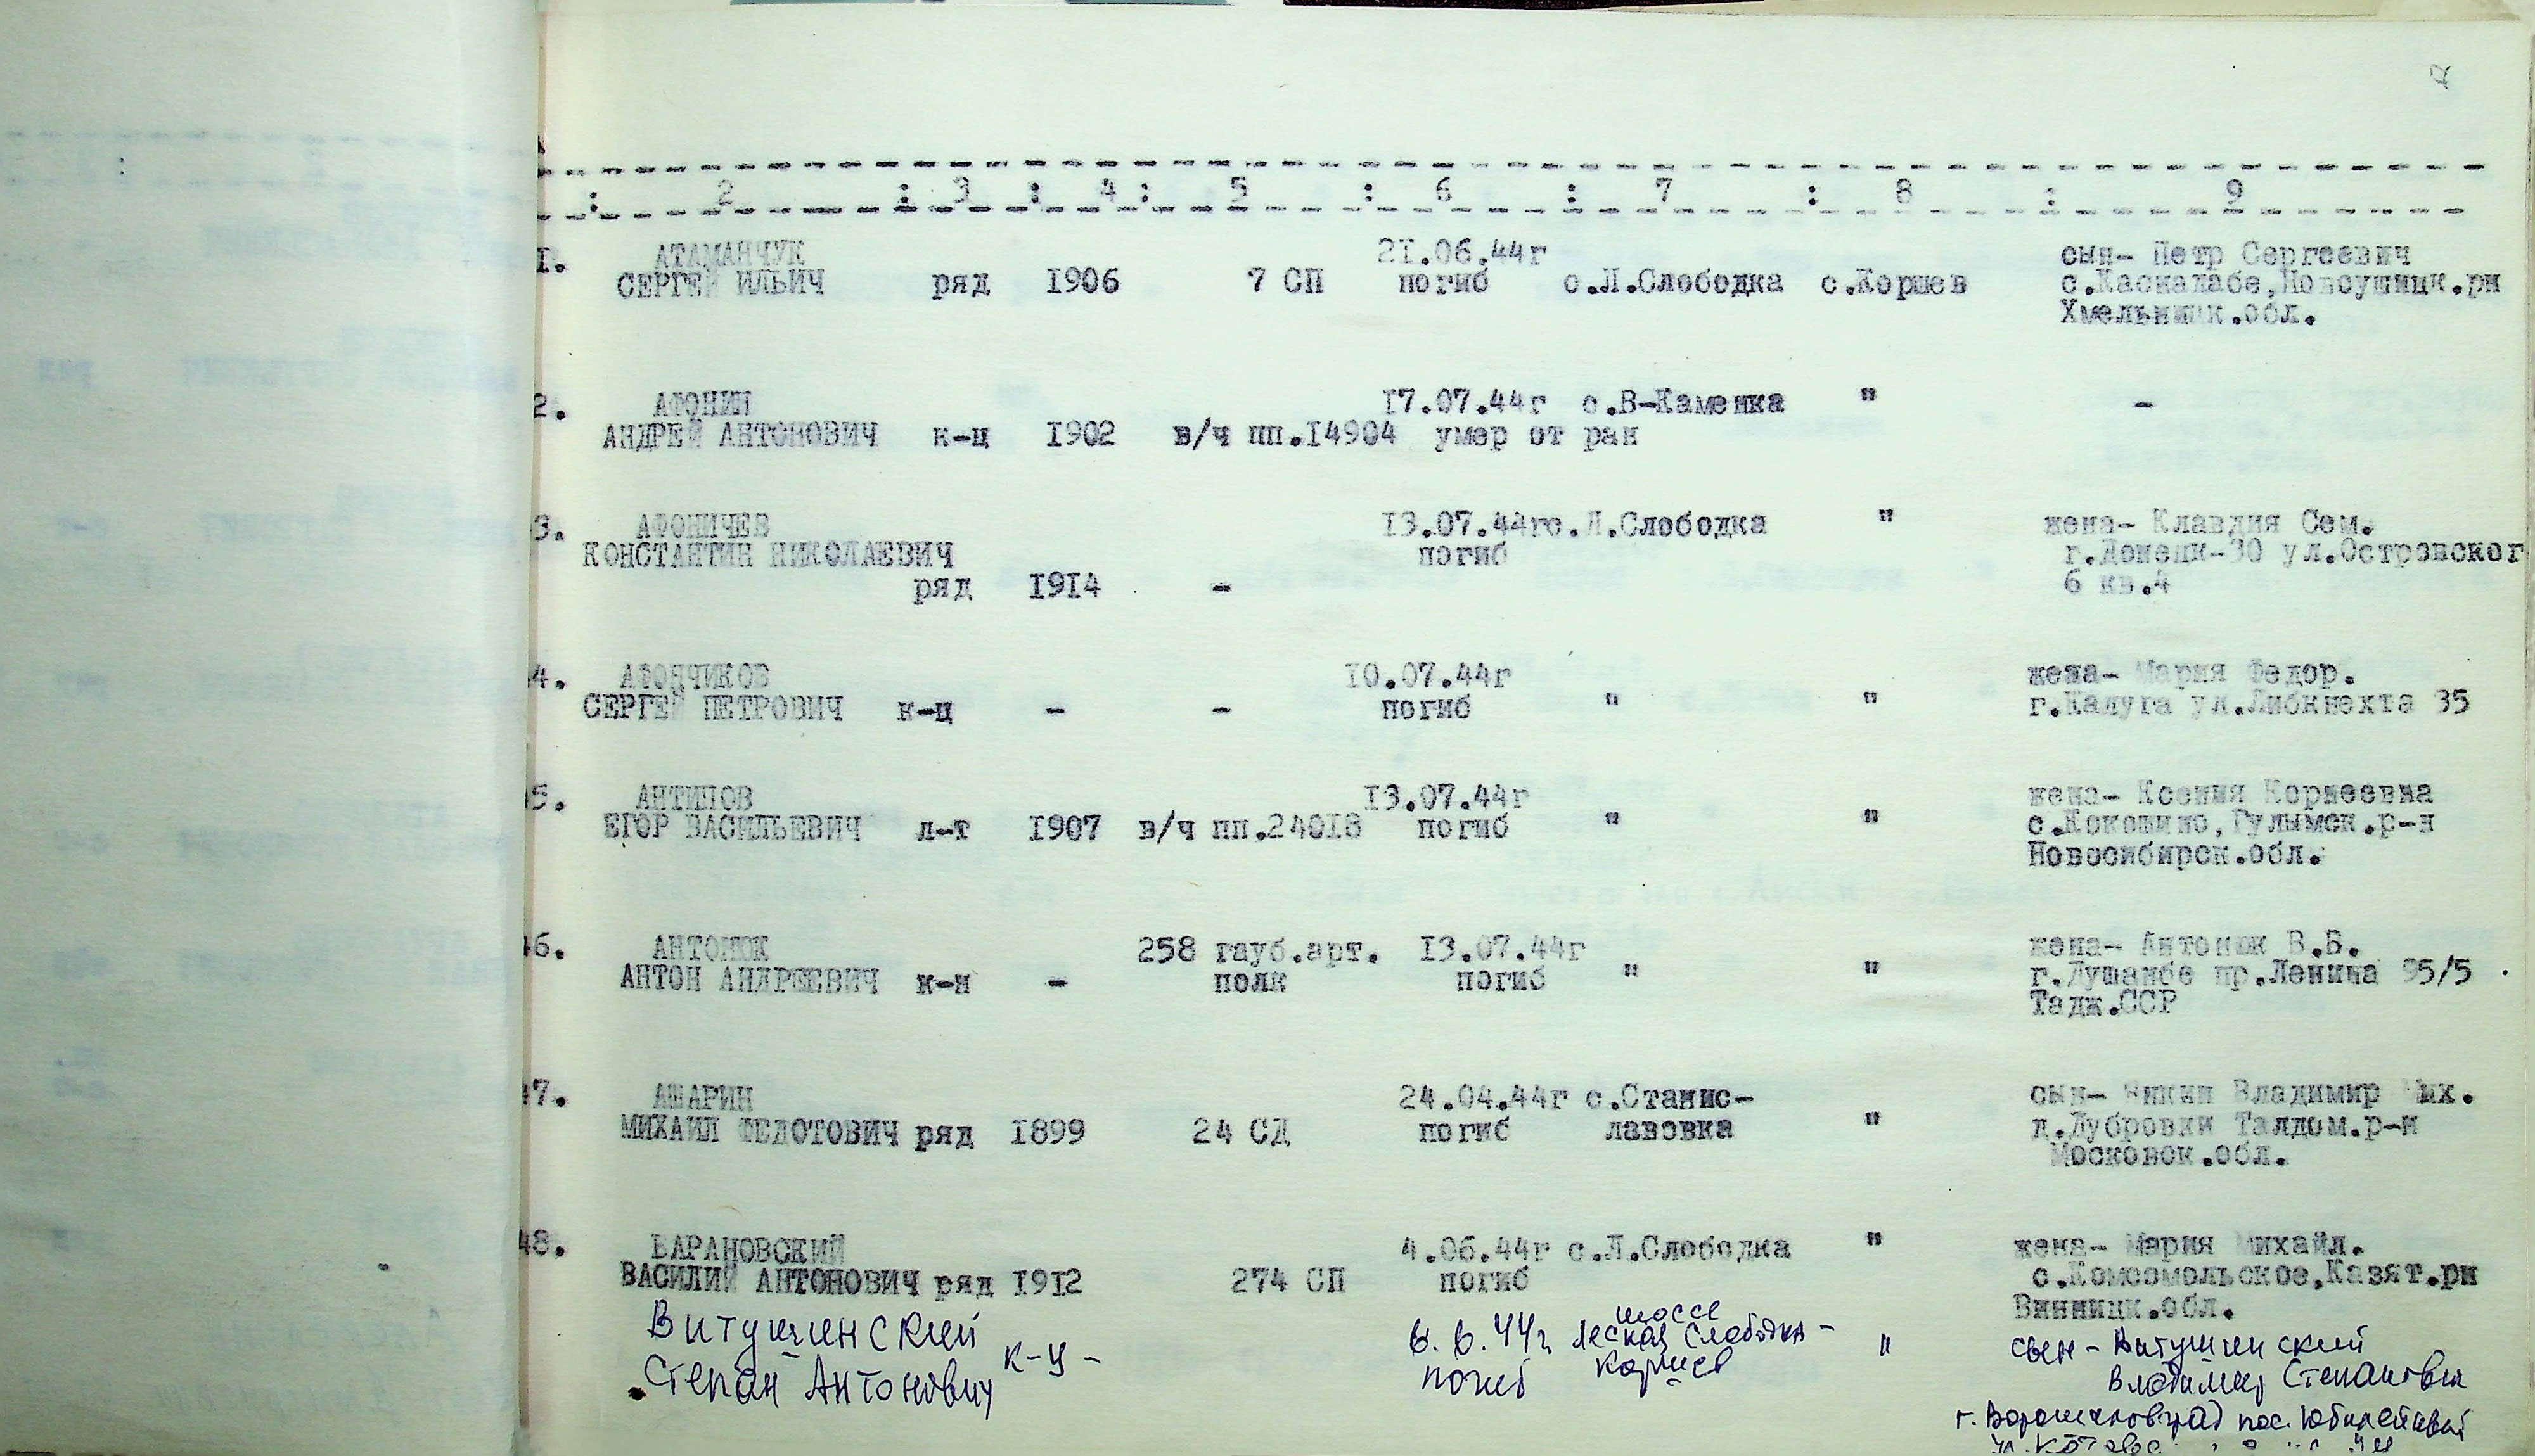 : 2 : 3 : 4 : 5 : 6 : 7 : 8 : 9
1. АТАМАНЧУК 21.06.44г сын- Петр Сергеевич
СЕРГЕЙ ИЛЬИЧ ряд 1906 7 СП погиб с.Л.Слободка с.Коршев с.Каскалабе,Новоушицк.рн
Хмельницк.обл.
2. АФОНИН 17.07.44г с.В-Каменка " -
АНДРЕЙ АНТОНОВИЧ к-ц 1902 в/ч пп.14904 умер от ран
3. АФОНИЧЕВ 13.07.44гс.Л.Слободка " жена- Клавдия Сем.
КОНСТАНТИН НИКОЛАЕВИЧ погиб г.Донецк-30 ул.Островског
ряд 1914 - 6 кв.4
4. АФОНЧИКОВ 10.07.44г жена- Мария Федор.
СЕРГЕЙ ПЕТРОВИЧ к-ц - - погиб " " г.Калуга ул.Либкнехта 35
5. АНТИПОВ 13.07.44г жена- Ксения Корнеевна
ЕГОР ВАСИЛЬЕВИЧ л-т 1907 в/ч пп.24018 погиб " " с.Кокошино,Гулымск.р-н
Новосибирск.обл.
46. АНТОНЮК 258 гауб.арт. 13.07.44г жена- Антонюк В.Б.
АНТОН АНДРЕЕВИЧ к-н - полк погиб " " г.Душанбе пр.Ленина 95/5
Тадж.ССР
47. АШАРИН 24.04.44г с.Станис- сын- Владимир Мих.
МИХАИЛ ФЕДОТОВИЧ ряд 1899 24 СД погиб лавовка " д.Дубровки Талдом.р-н
Московск.обл.
48. БАРАНОВСКИЙ 4.06.44г с.Л.Слободка " жена- Мария Михайл.
ВАСИЛИЙ АНТОНОВИЧ ряд 1912 274 СП погиб с.Комсомольское,Казят.рн
Винницк.обл.
Витушинский к-ц - 6.6.44г шоссе Лесная Слободка - " сын - Витушинский
Степан Антонович погиб Коршев Владимир Степанович
г. Ворошиловград пос. Юбилейный